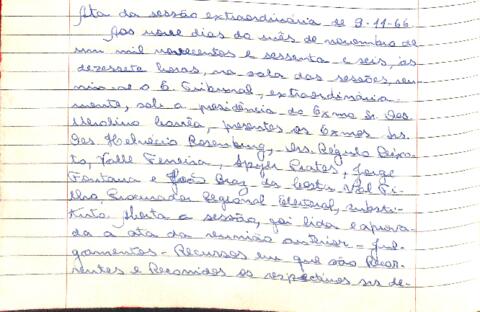 Ata da sessão extraordinária de 9-11-66
Aos nove dias do mês de novembro de
um mil novecentos e sessenta e seis, às
dezessete horas, na sala das sessões, reu-
niu-se o E. Tribunal, extraordinária
mente, sob a presidência do Exmo Sr. Des
presentes os Exmos Srs.
Des. Helvécio Rosenburg, Drs. Régulo Peixo-
to, Valle Ferreira, Spyer Prates, Jorge
Fontana e João Braz da Costa Val Fi-
lho, Procurador Regional Eleitoral, substi-
tuto. Aberta a sessão, foi lida e aprova-
da a ata da reunião anterior - Jul-
gamentos - Recursos em que são Recor-
rentes e Recorridos os respectivos srs de-